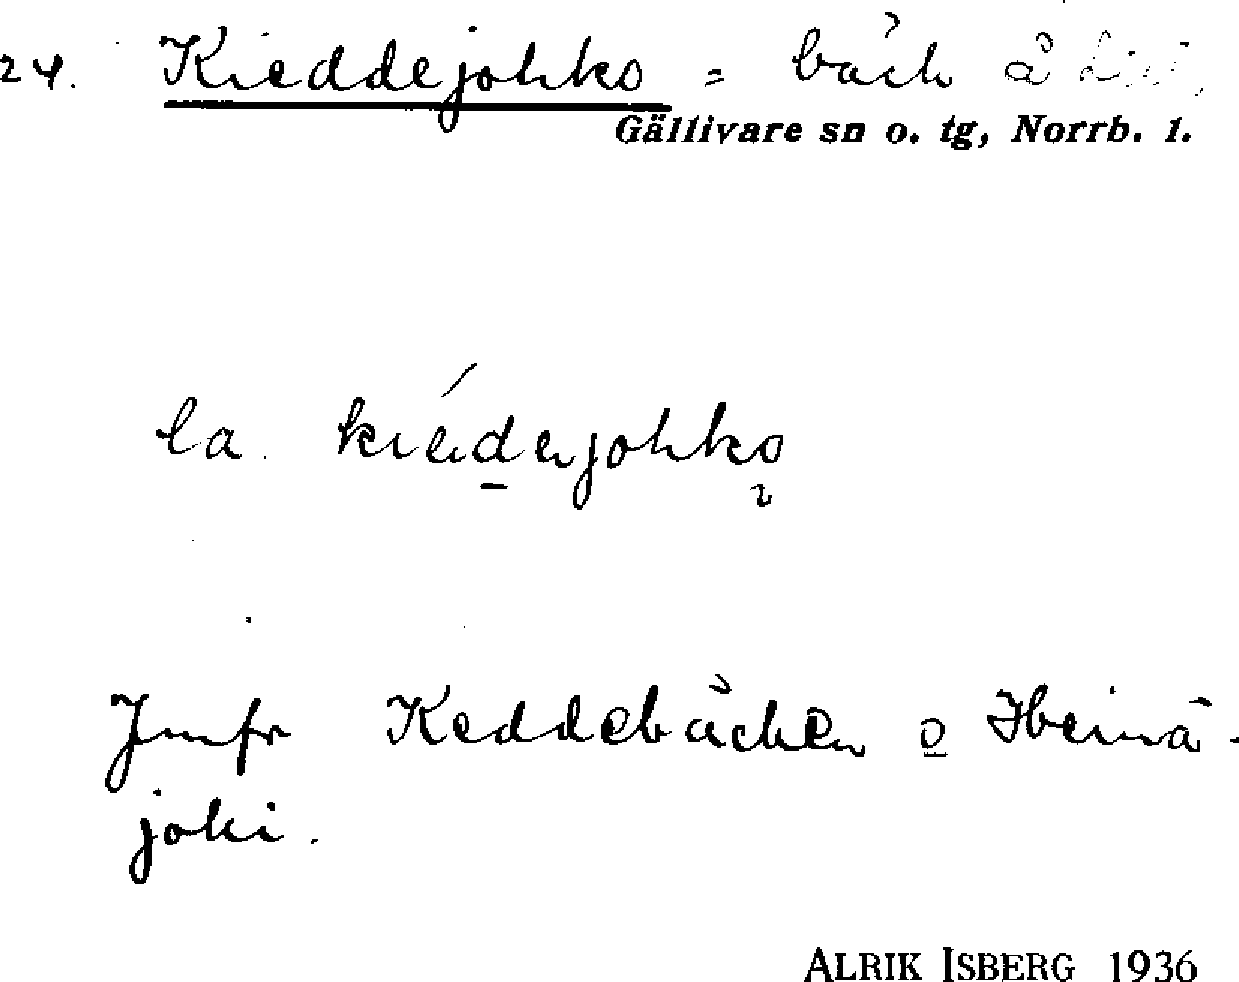 24. Kieddejohko = bäck å
Gällivare sn o. tg, Norrb. 1.
la.
Jmfr Keddebäcken o Heinä-
joki.
ALRIK ISBERG 1936